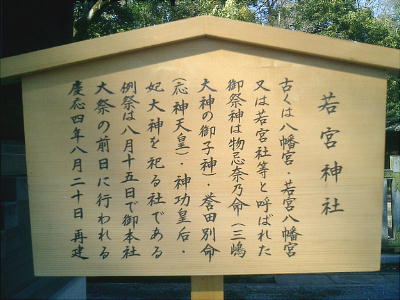 若宮神社
古くは八幡宮・若宮八幡宮
又は若宮社等と呼ばれた
御祭神は物忌奈乃命(三嶋
大神の御子神)・誉田別命
(応神天皇)・神功皇后・
妃大神を祀る社である
例祭は八月十五日で御本社
大祭の前日に行われる
慶応四年八月二十日 再建